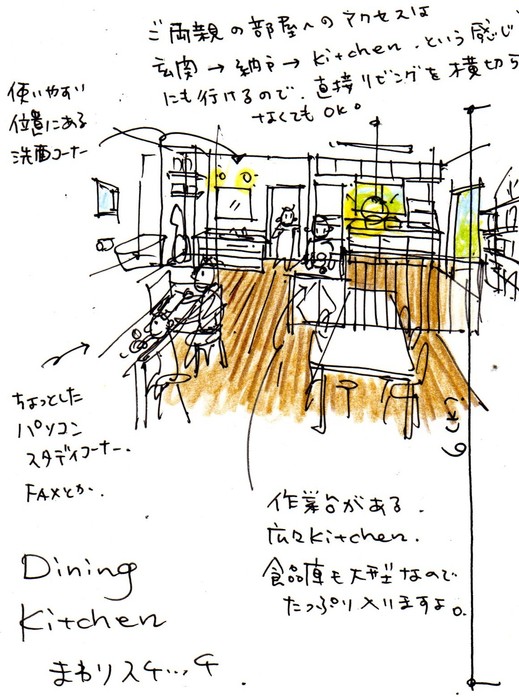 ご両親の部屋へのアクセスは
玄関→納戸→kitchen.という感じ
にも行けるので.直接リビングを横切ら
なくてもOK。
使いやすい
位置にある
洗面コーナー
ちょっとした
パソコン
スタディコーナー.
FAXとか.
作業台がある.
広々kitchen.
食品庫も大型なので
たっぷり入りますよ。
Dining
Kitchen
まわりスケッチ.